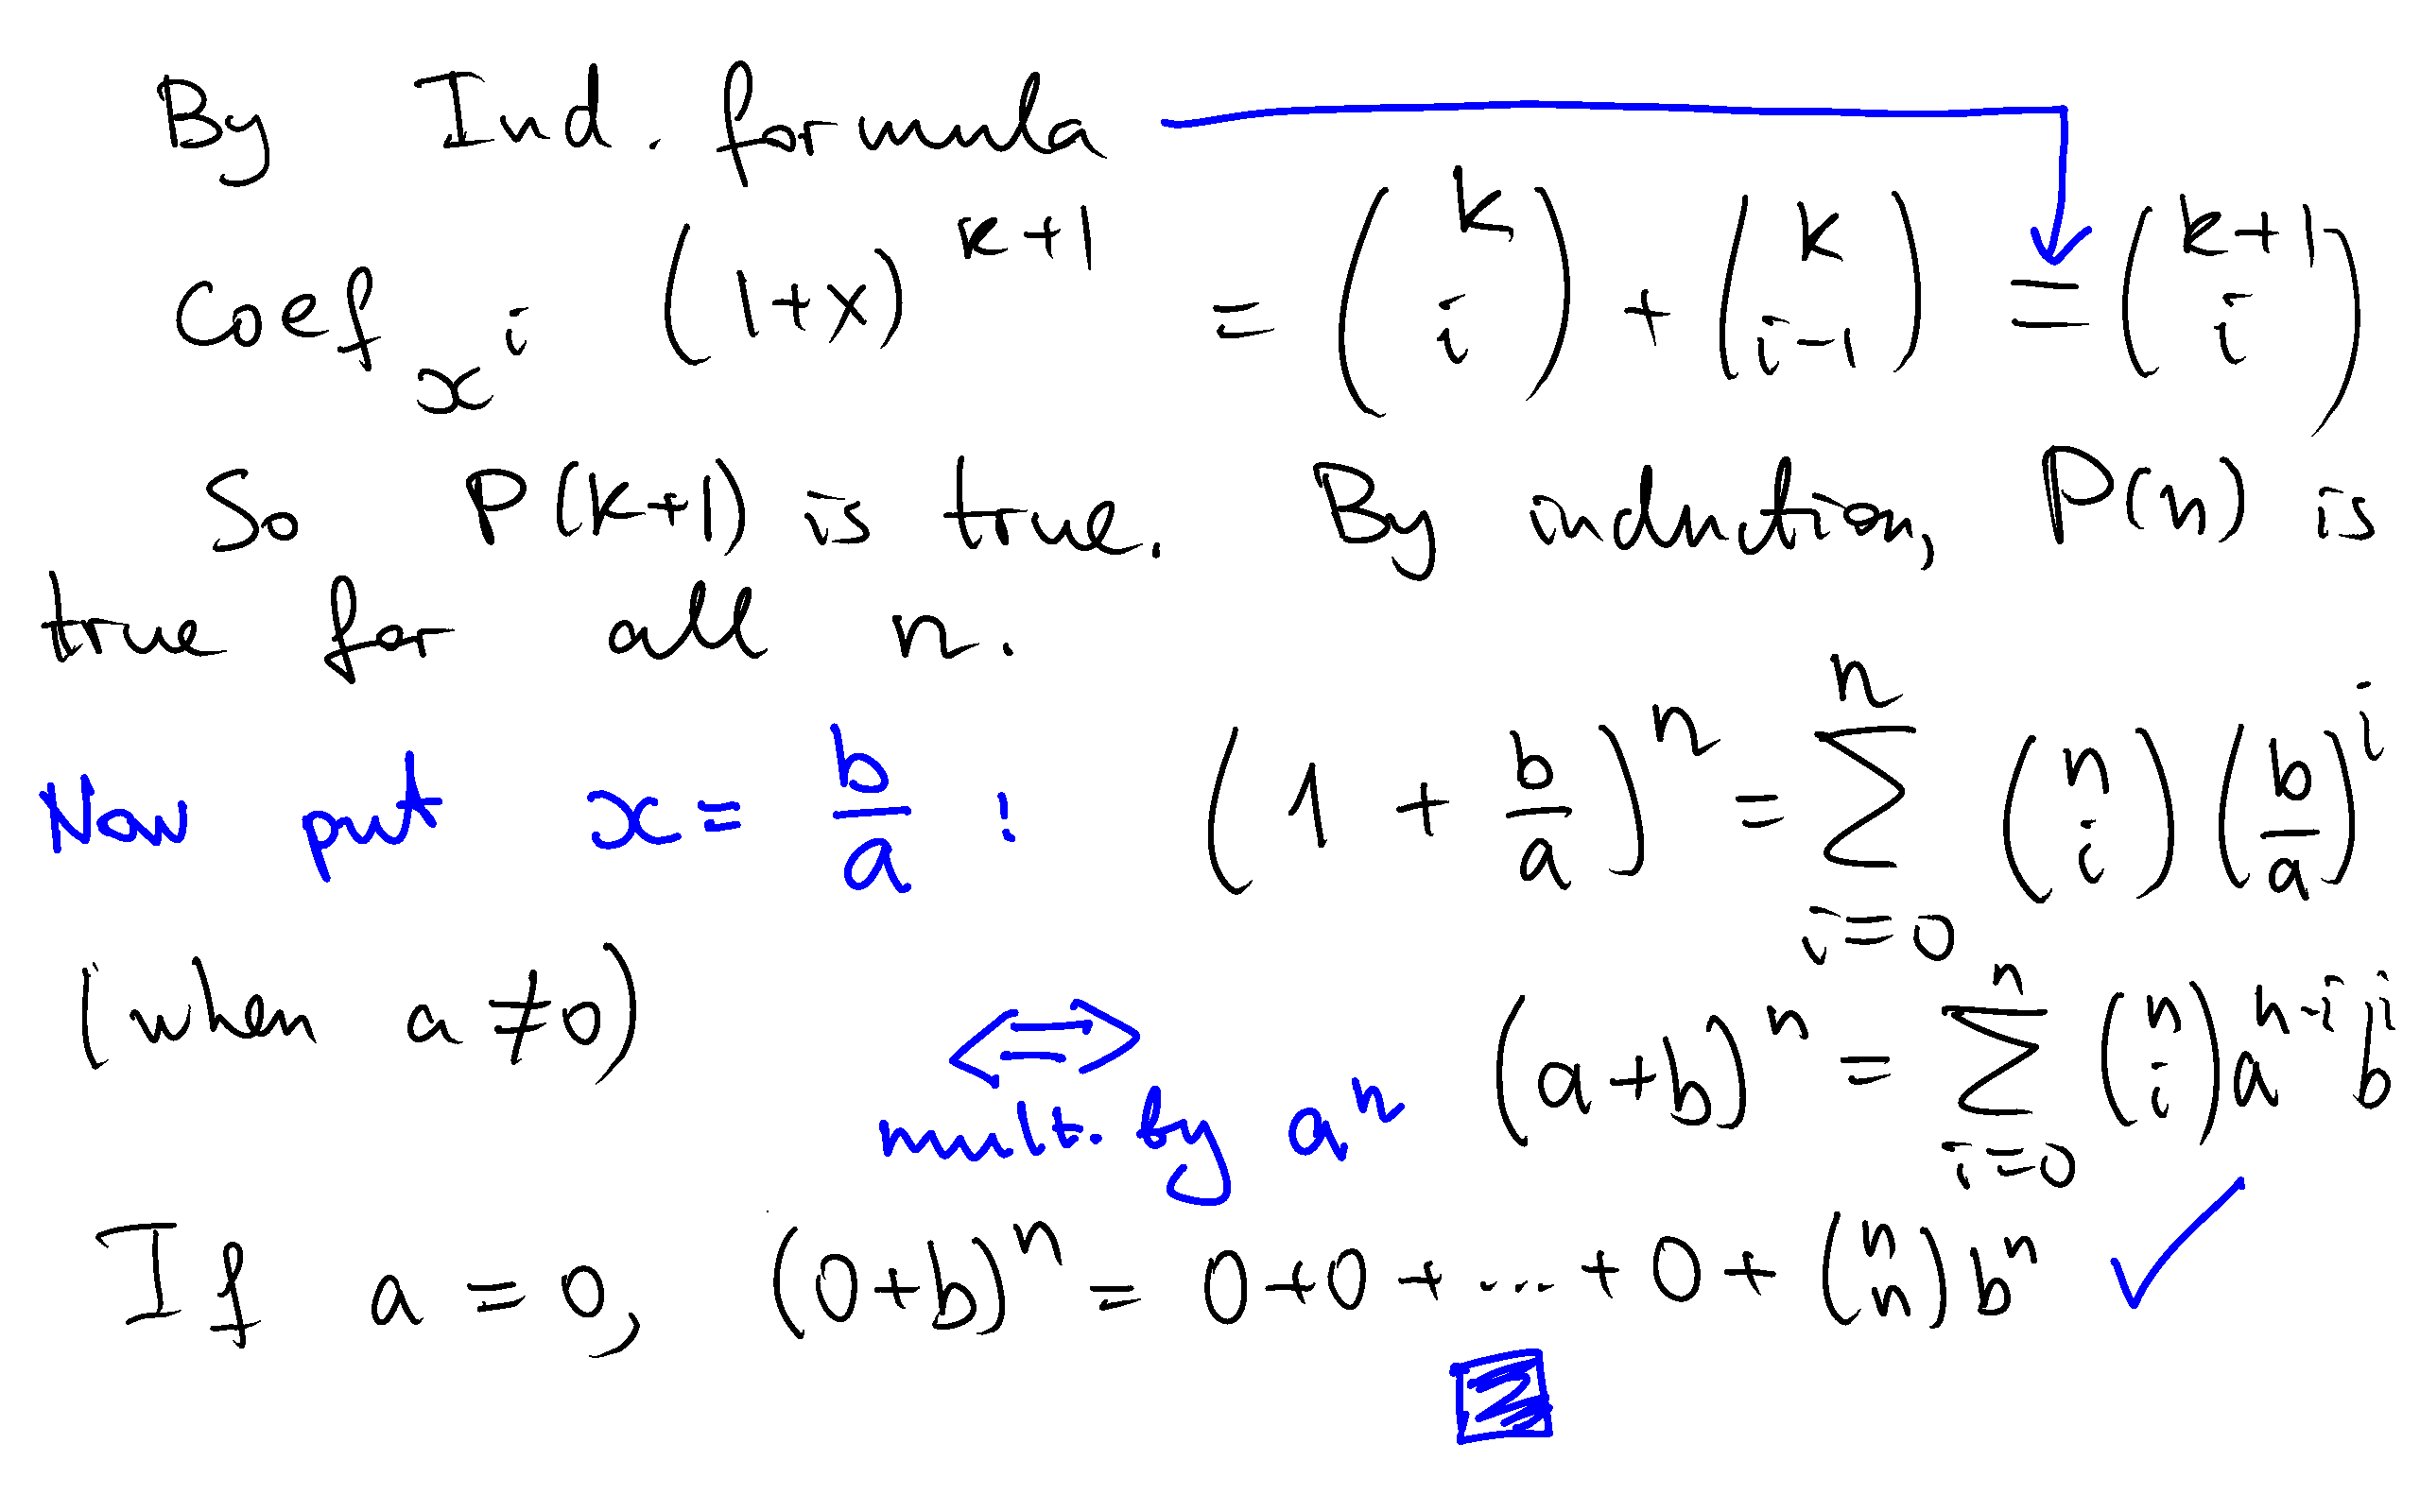 By Ind. formula
Coef_{x^i} (1+x)^{k+1} = \binom{k}{i} + \binom{k}{i-1} = \binom{k+1}{i}
So P(k+1) is true. By induction, P(n) is
true for all n.
Now put x = \frac{b}{a} : (1 + \frac{b}{a})^n = \sum_{i=0}^{n} \binom{n}{i} (\frac{b}{a})^i
(when a ≠ 0) ⟺ (a+b)^n = \sum_{i=0}^{n} \binom{n}{i} a^{n-i} b^i
mult. by a^n
If a = 0, (0+b)^n = 0+0+ ... +0+ \binom{n}{n} b^n ✓